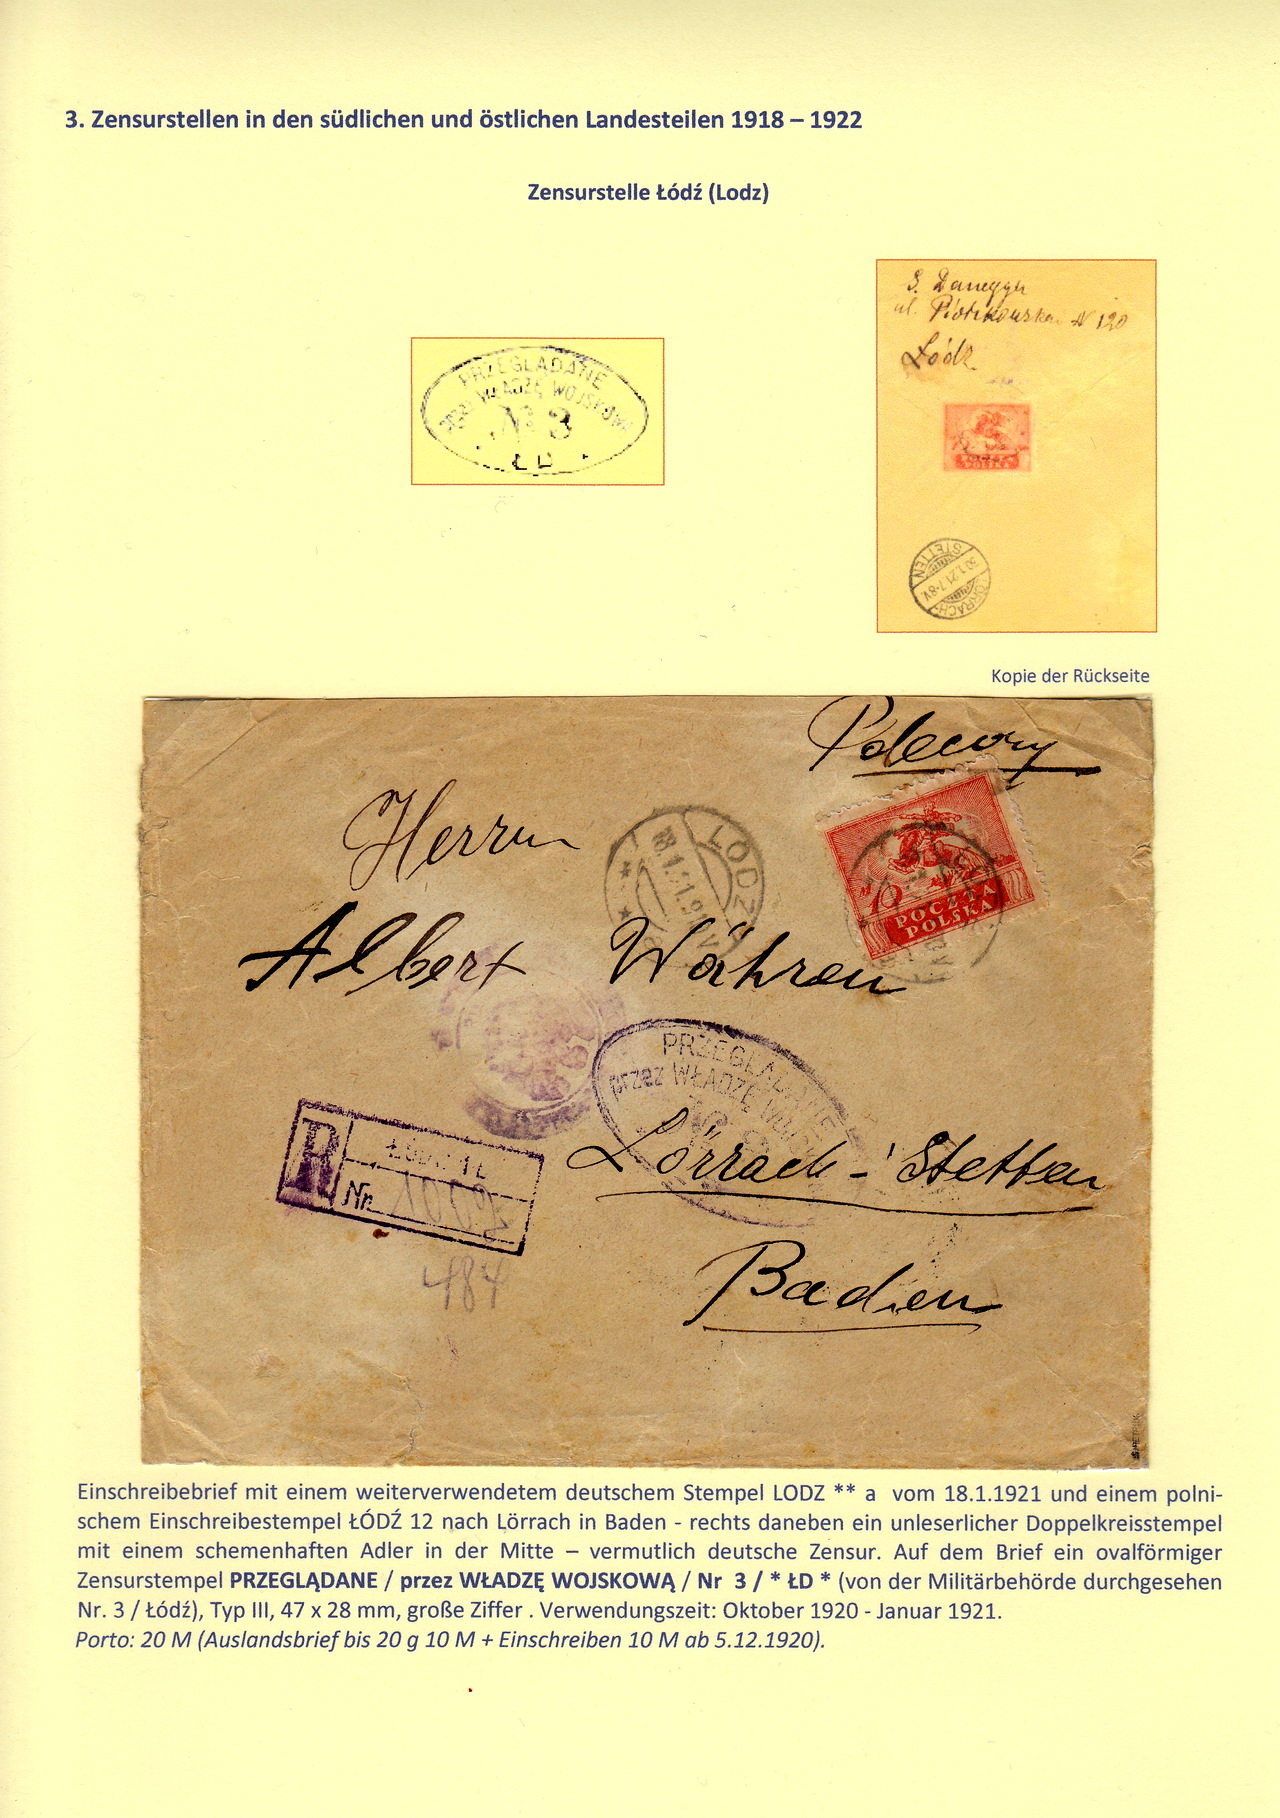 3. Zensurstellen in den südlichen und östlichen Landesteilen 1918 – 1922
Zensurstelle Łódź (Lodz)
PRZEGLĄDANE
przez WŁADZĘ WOJSKOWĄ
Nr 3
ŁD
ul. Piotrkowska N 120
Łódź
STETTEN
30.1.21.7-8V.
LÖRRACH
Kopie der Rückseite
Polecony
Herrn
LODZ
18.1.21.9
10
POCZTA
POLSKA
Albert Währen
PRZEGLĄDANE
przez WŁADZĘ
R
Nr.
Lörrach - Stetten
484
Baden
Einschreibebrief mit einem weiterverwendetem deutschem Stempel LODZ ** a vom 18.1.1921 und einem polni-
schem Einschreibestempel ŁÓDŹ 12 nach Lörrach in Baden - rechts daneben ein unleserlicher Doppelkreisstempel
mit einem schemenhaften Adler in der Mitte – vermutlich deutsche Zensur. Auf dem Brief ein ovalförmiger
Zensurstempel PRZEGLĄDANE / przez WŁADZĘ WOJSKOWĄ / Nr 3 / * ŁD * (von der Militärbehörde durchgesehen
Nr. 3 / Łódź), Typ III, 47 x 28 mm, große Ziffer . Verwendungszeit: Oktober 1920 - Januar 1921.
Porto: 20 M (Auslandsbrief bis 20 g 10 M + Einschreiben 10 M ab 5.12.1920).